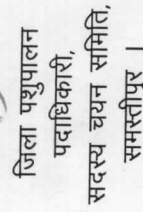 जिला पशुपालन
पदाधिकारी,
सदस्य चयन समिति,
समस्तीपुर ।